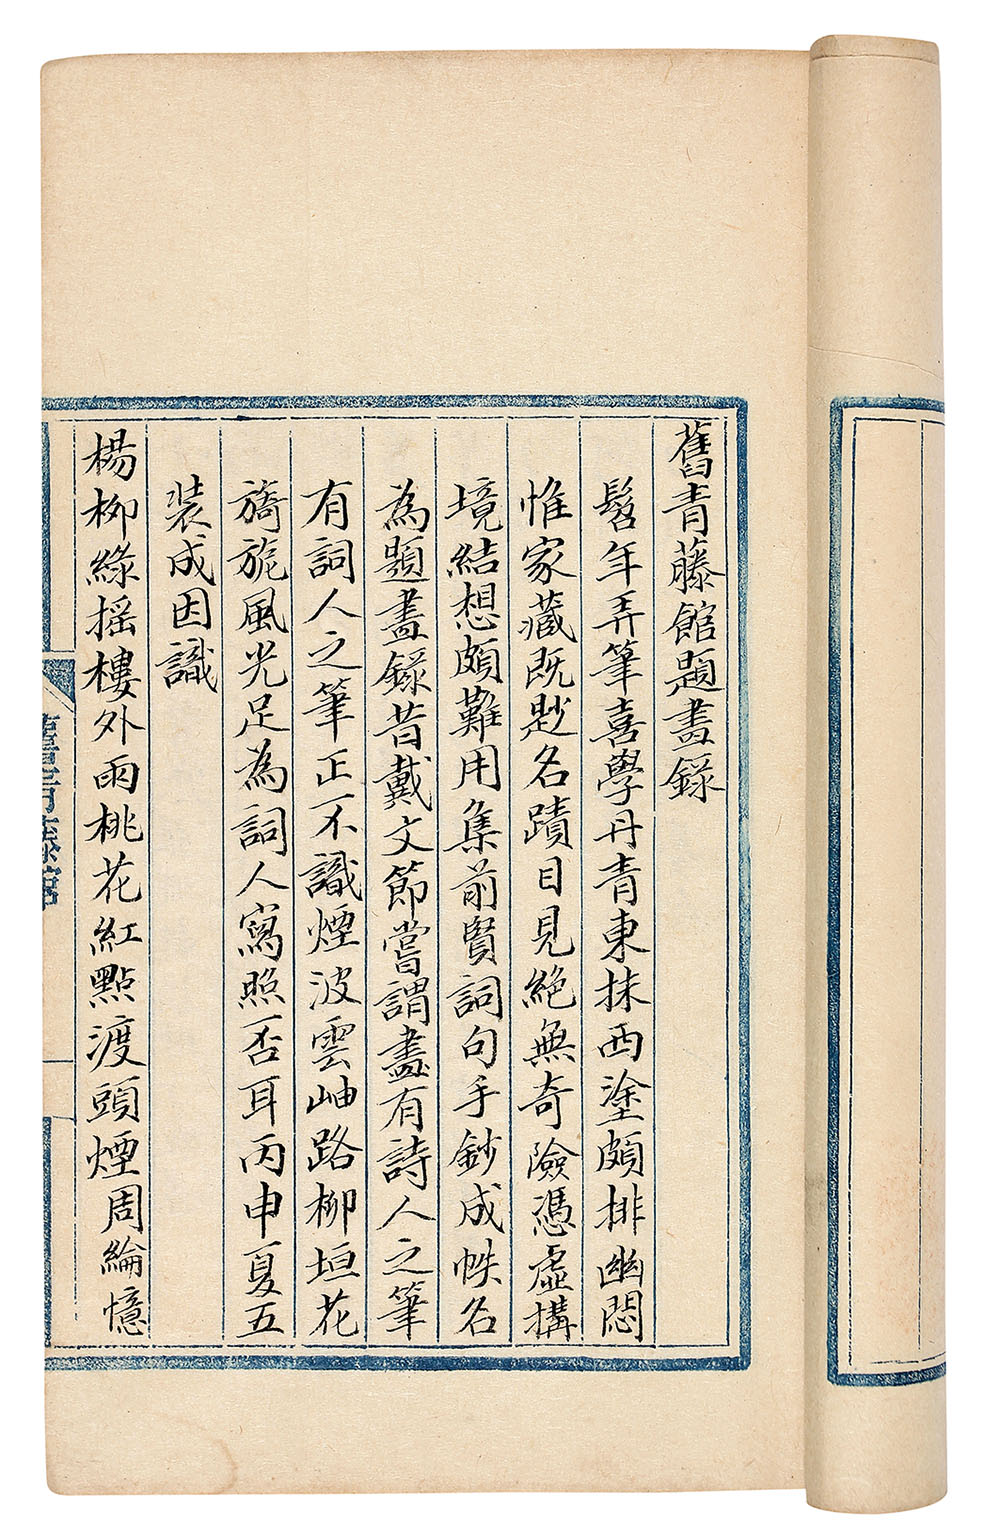 舊青藤館題畫錄
髫年弄筆喜學丹青東抹西塗頗排幽悶
惟家藏既尠名蹟目見絕無奇險憑虛搆
境結想頗難用集前賢詞句手鈔成帙名
為題畫錄昔戴文節嘗謂畫有詩人之筆
有詞人之筆正不識煙波雲岫路柳垣花
旖旎風光足為詞人寫照否耳丙申夏五
裝成因識
楊柳綠搖樓外雨桃花紅點渡頭煙周綸憶
舊青藤館